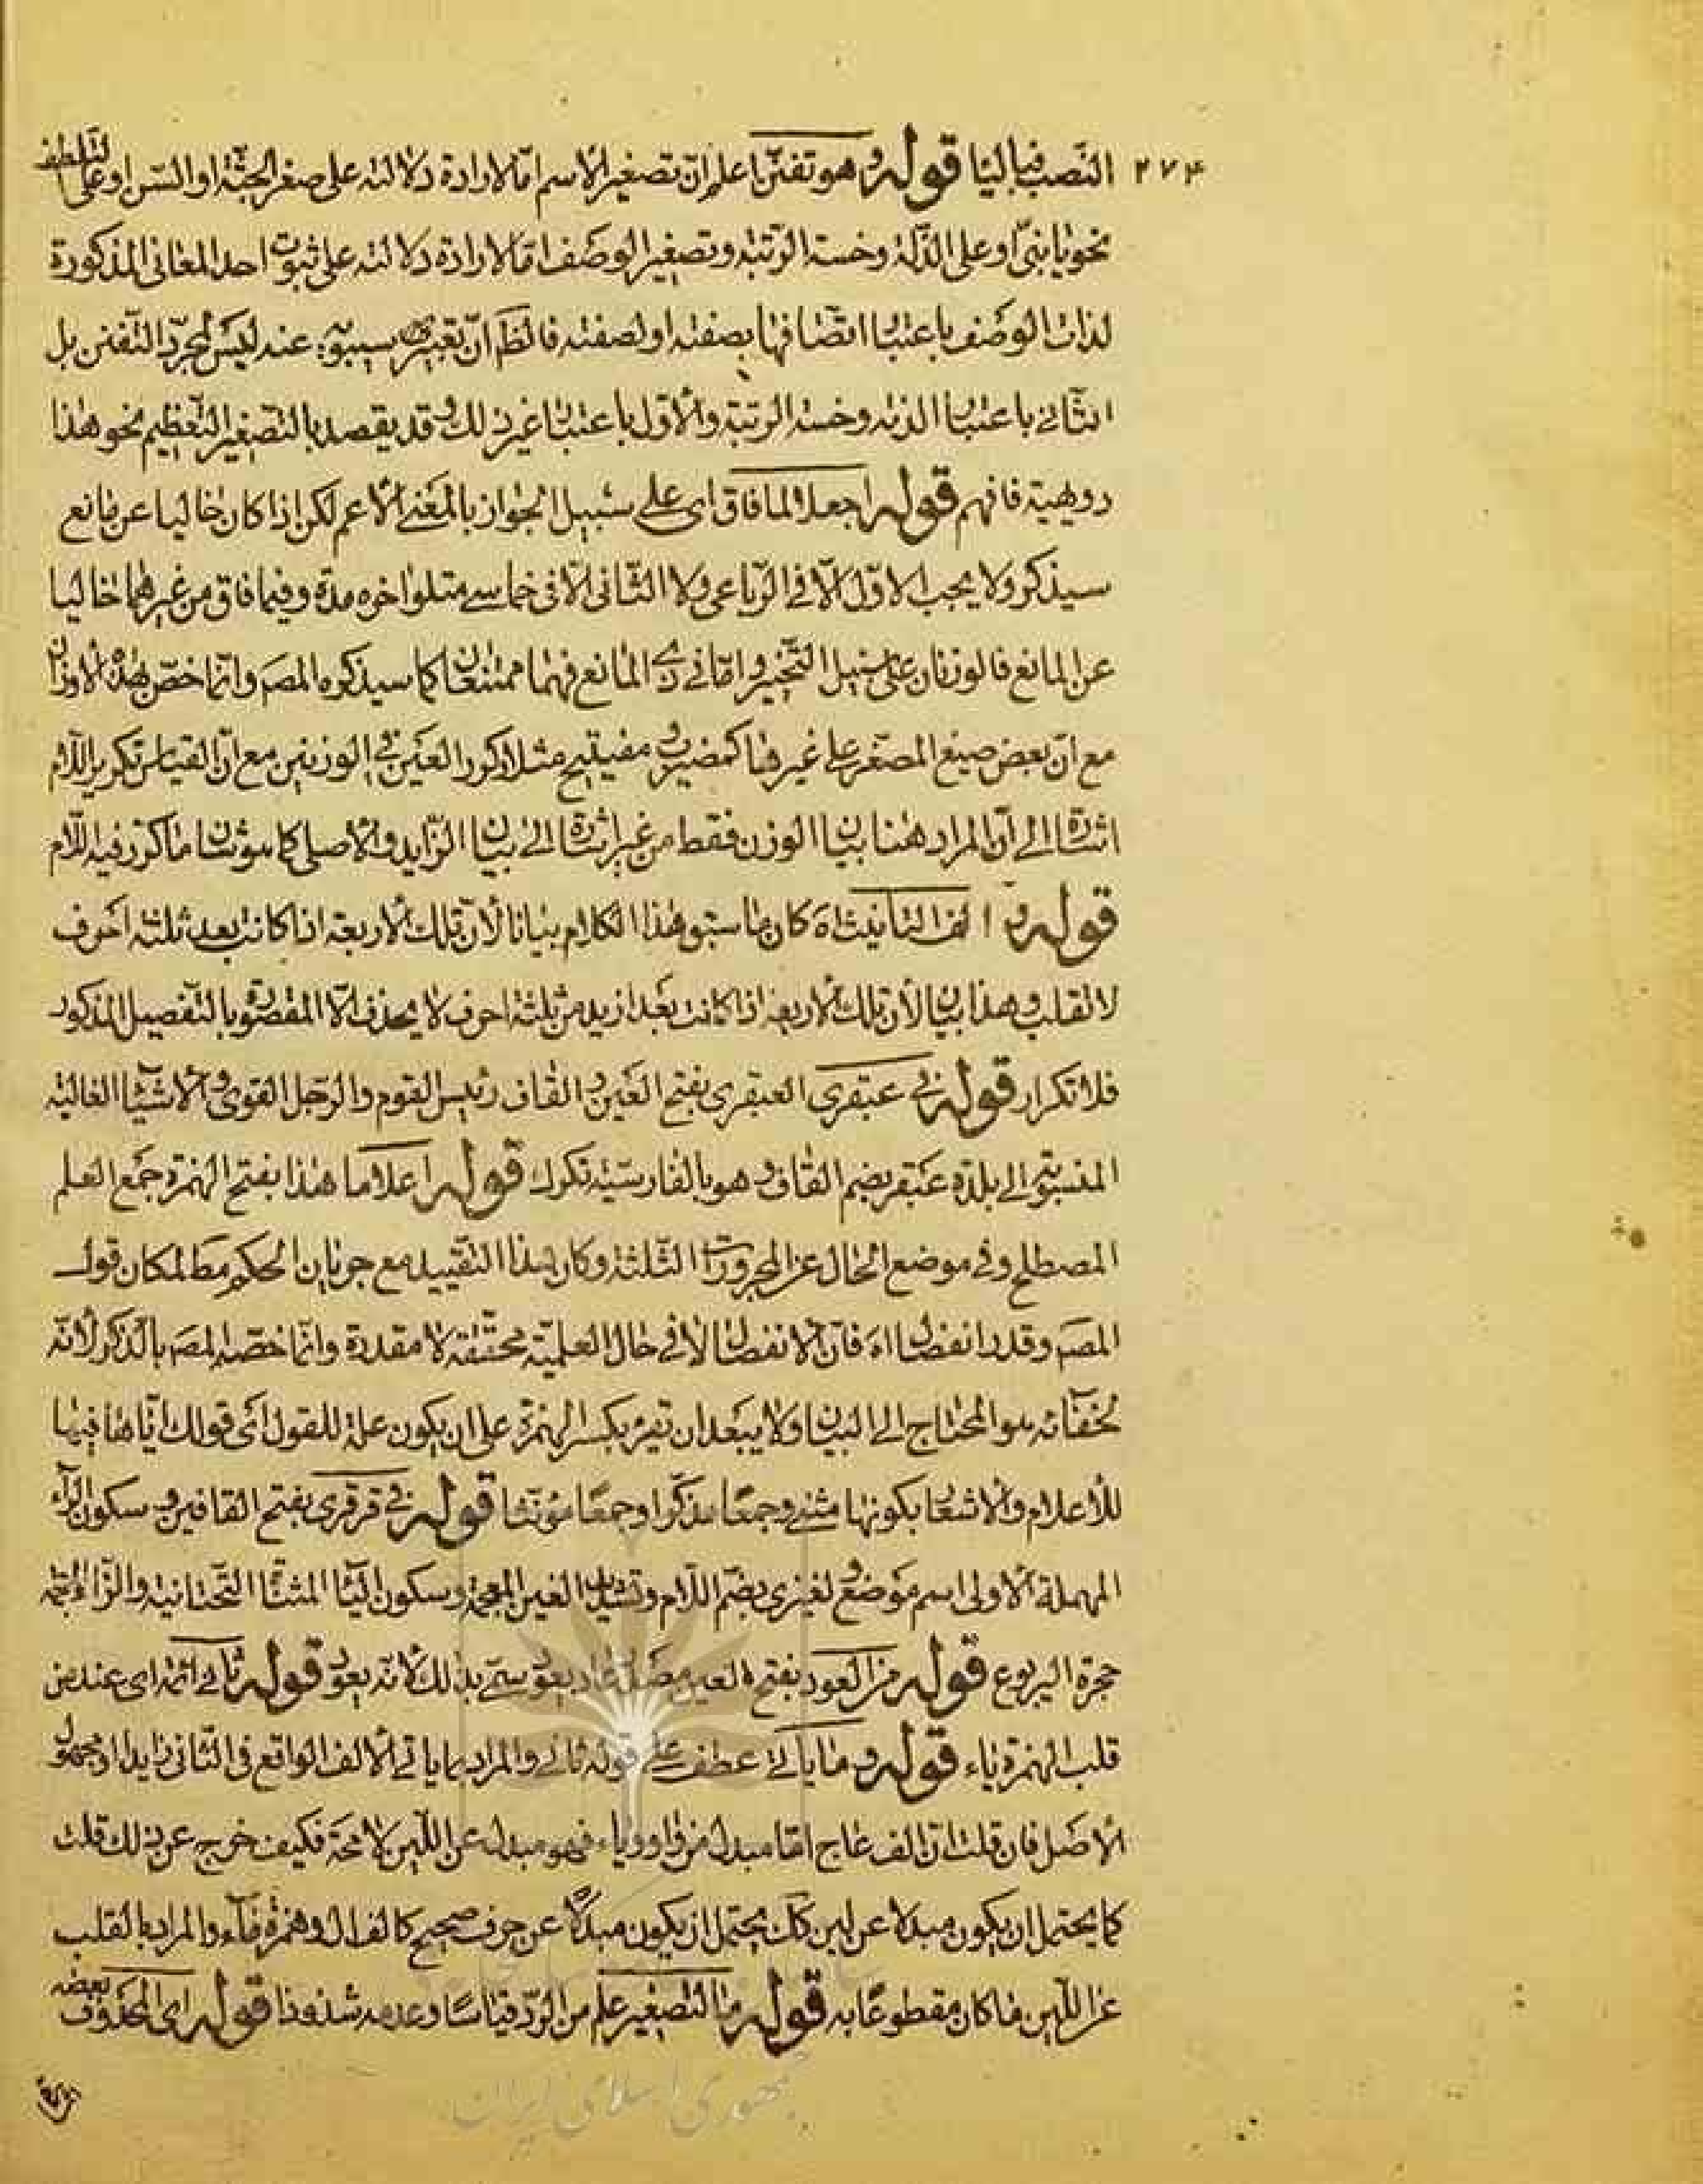 ٢٧٤ النصب فبالياء قوله وهو تفنن اعلم ان تصغير الاسم امّا لارادة دلالته على صغر الجثّة او السّن او على التلطف
نحو يا بنىّ او على الذّلّة وخسّة الرّتبة وتصغير الوصف امّا لارادة دلالته على ثبوت احد المعانى المذكورة
لذات الوصف باعتبار اتّصافها بصفته او لصفته فالظ انّ تعبير سيبويه عنه ليس لمجرّد التّفنن بل
الثّانى باعتبار الذلّة وخسّة الرتبة والاوّل باعتبار غير ذلك وقد يقصد بالتّصغير التّعظيم نحو هذا
دويهية فافهم قوله اجعلا لما فاق اى على سبيل الجواز بالمعنى الاعم لكن اذا كان خاليا عن مانع
سيذكر ولا يجب الاوّل الّا فى الرّباعى ولا الثّانى الّا فى خماسى متلوا خره مدة وفيما فاق من غيرهما خاليا
عن المانع فالوزنان على سبيل التّخيير وامّا فى ذى المانع فهما ممتنعان كما سيذكره المصم وانّما خصّ هذه الاوزان
مع انّ بعض صيغ المصغّر على غيرها كمضيرب ومفيتيح مثلا وكرر العين فى الوزنين مع انّ القياس تكرير اللّام
اشارة الى انّ المراد هنا بيان الوزن فقط من غير اشارة الى بيان الزّايد والاصلى كما هو شان ما كرّر فيه اللّام
قوله والف التانيث اه كان ما سبق هذا الكلام بيانا لانّ تلك الاربعة اذا كانت بعد ثلثة احرف
لا تقلب وهذا بيان لانّ تلك الاربعة اذا كانت بعد ازيد من ثلثة احرف لا يحذف الّا المقصورة بالتّفصيل المذكور
فلا تكرار قوله فى عبقرى العبقرى بفتح العين والقاف رئيس القوم والرّجل القوى والاشياء الغالية
المنسوبة الى بلدة عبقر بضم القاف وهو بالفارسيّة قوله اعلاما هذا بفتح الهمزة جمع العلم
المصطلح وفى موضع الحال عن المجرورات الثّلثة وكان هذا التّقييد مع جريان الحكم مط لمكان قول
المصم وقدر انفصال اه فانّ الانفصال الّا فى حال العلميّة محقّقة لا مقدرة وانّما خصّه المصم بالذّكر لانّه
لخفائه هو المحتاج الى البيان ولا يبعد ان تقرء بكسر الهمزة على ان يكون علة للقول اى قولك
للاعلام والاشعار بكونها مثنى وجمعًا مذكّرا وجمعًا مؤنّثا قوله فى قرقرى بفتح القافين وسكون الرّاء
المهملة الاولى اسم موضع ولغيزى بضمّ اللّام وتشديد الغين المعجمة وسكون الياء المثنّاة التّحتانية والزّاء المعجمة
حجرة اليربوع قوله من العود بفتح العين مصدر عاد يعود سمّى بذلك لانّه يعود قوله ثانى ائمة اى عند من
قلب الهمزة ياء قوله وما ياتى عطف على قوله ثانى والمراد بما ياتى الالف الواقع فى الثّانى زايدا او مجهول
الاصل فان قلت انّ الف عاج امّا مبدل من واو وياء فهو مبدل عن اللّين لا محة فكيف خرج عن ذلك قلت
كما يحتمل ان يكون مبدلا عن لين كك يحتمل ان يكون مبدلًا عن حرف صحيح كالف ال وهمزة فاء والمراد بالقلب
عن اللّين ما كان مقطوعًا به قوله ما التصغير علم من الرّد قياسًا وعدمه شذوذا قوله اى المحذوف بعضه